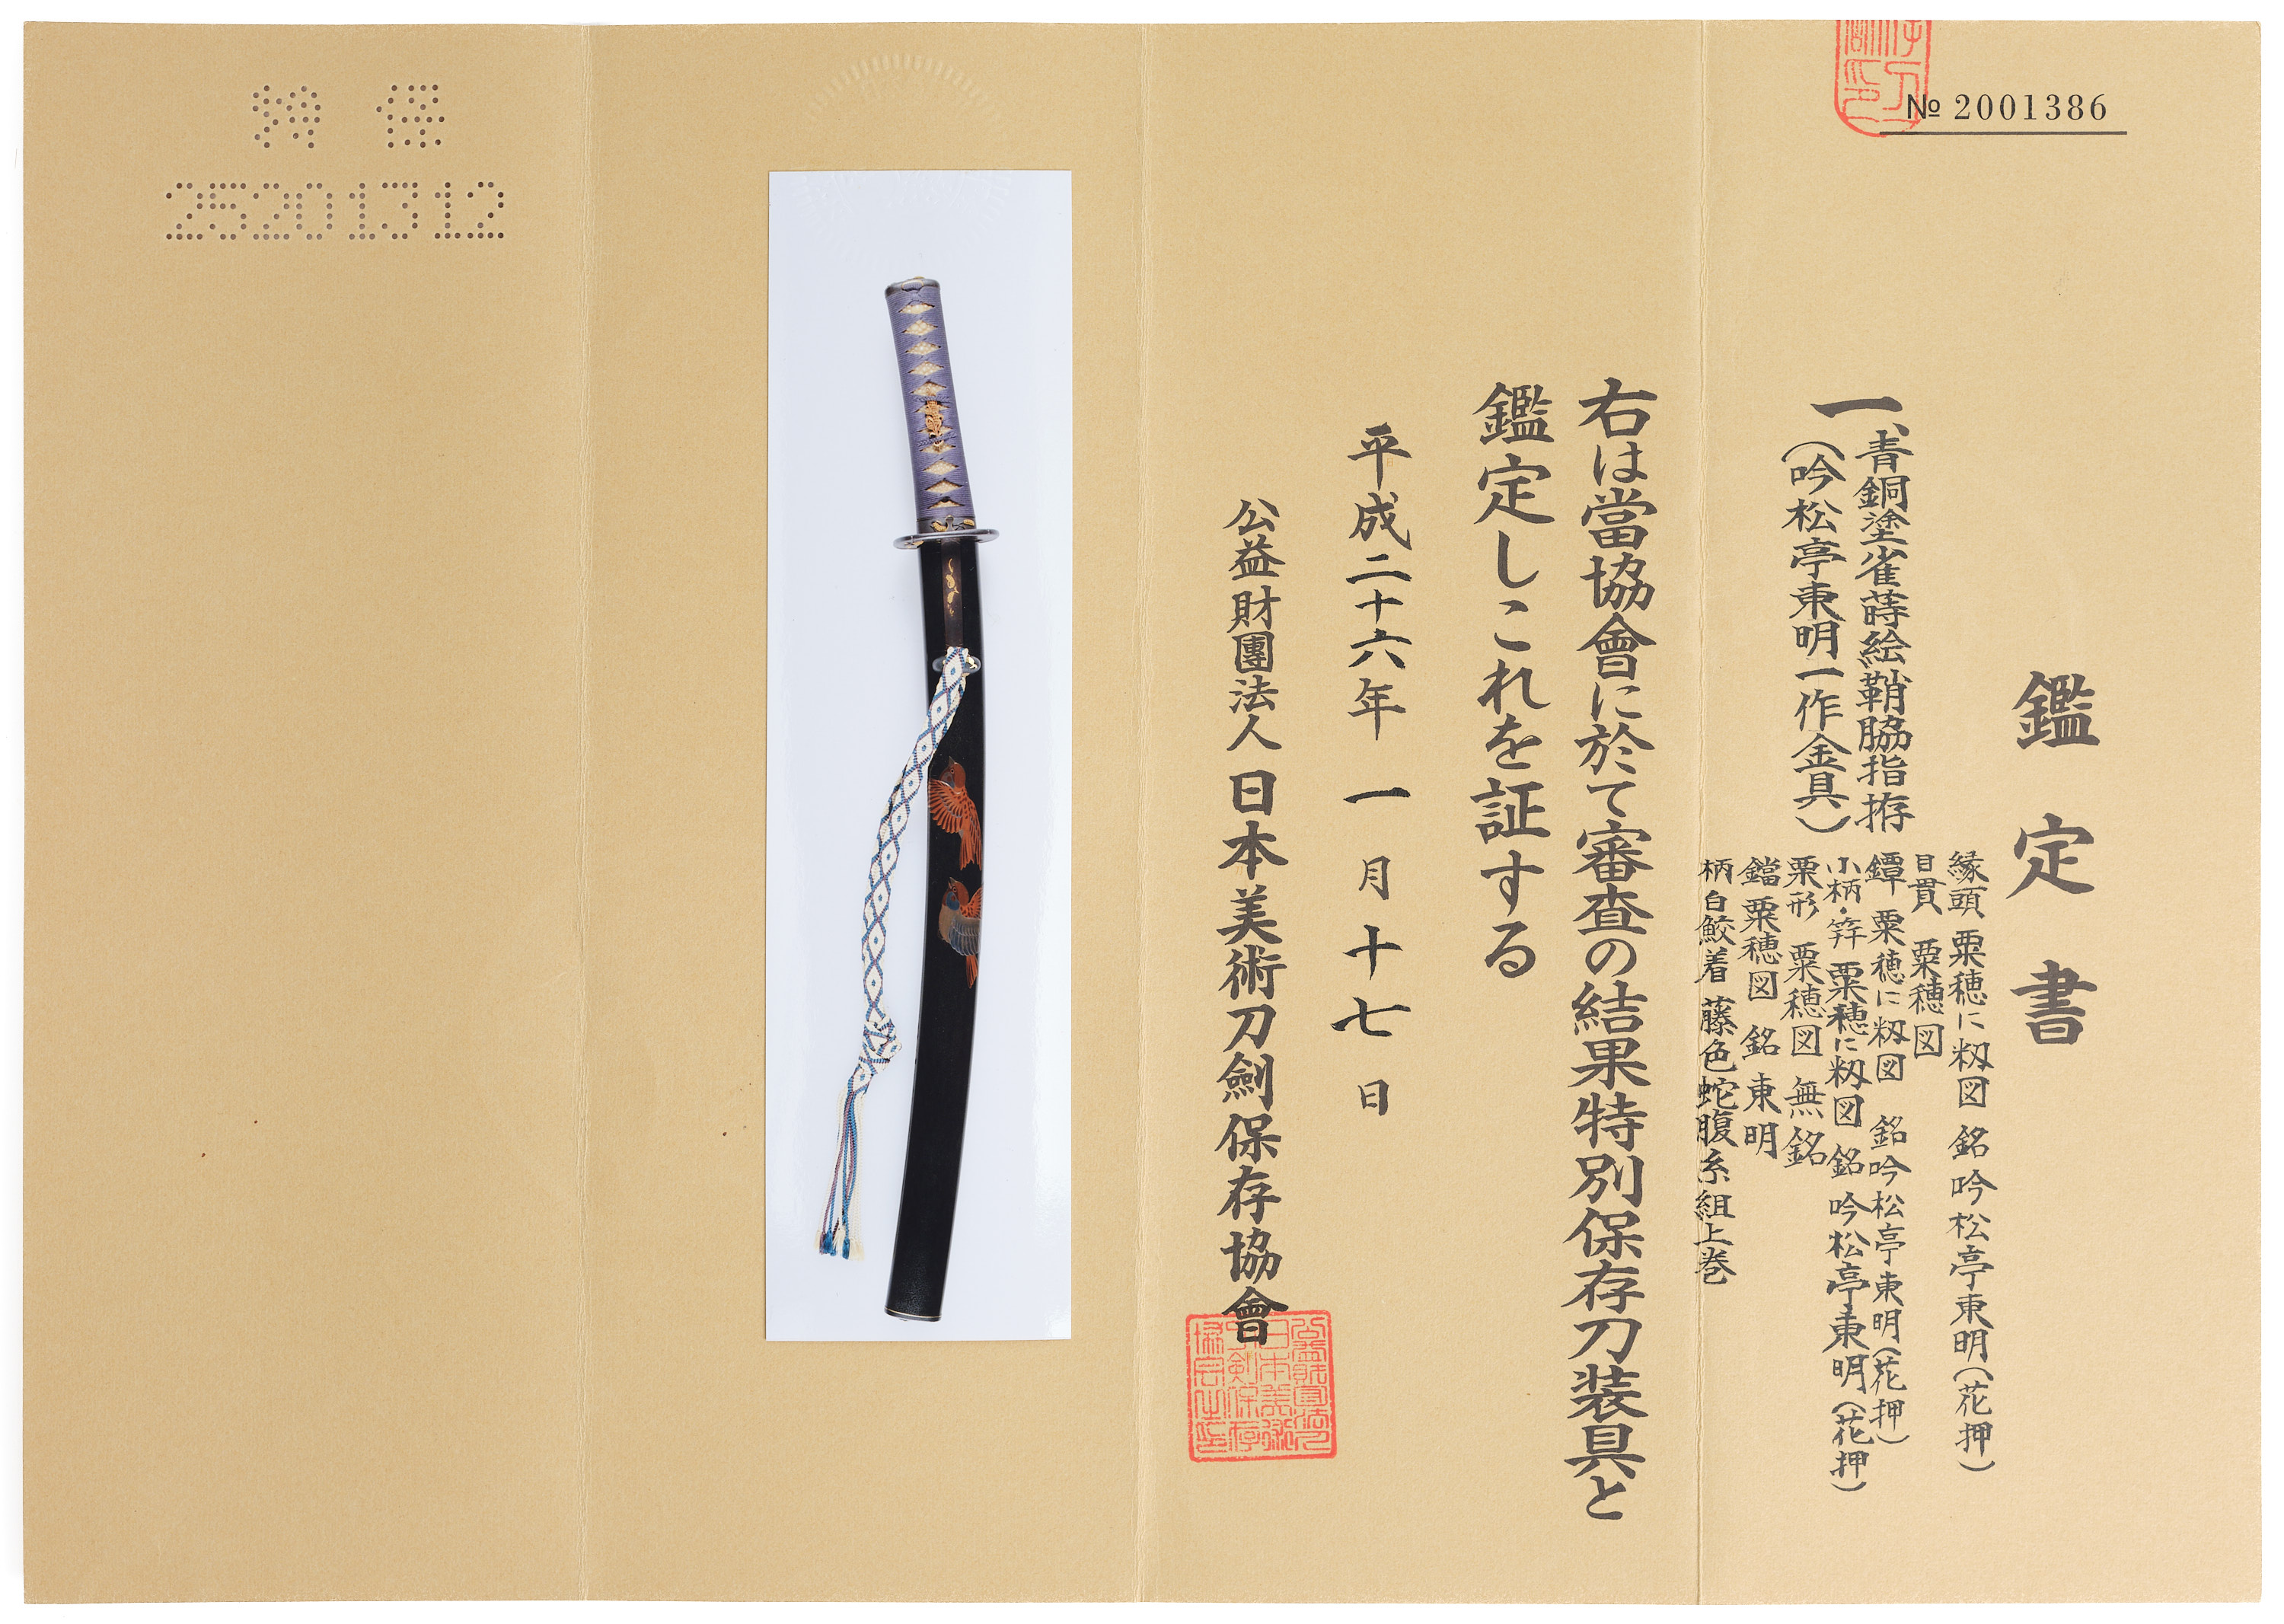 № 2001386
鑑定書
一、青銅塗雀蒔絵鞘脇指拵
(吟松亭東明一作金具)
縁頭 粟穂に籾図 銘 吟松亭東明(花押)
目貫 粟穂図
鐔 粟穂に籾図 銘 吟松亭東明(花押)
小柄・笄 粟穂に籾図 銘 吟松亭東明(花押)
栗形 粟穂図 無銘
鐺 粟穂図 銘 東明
柄 白鮫着 藤色蛇腹糸組上巻
右は當協會に於て審査の結果特別保存刀装具と
鑑定しこれを証する
平成二十六年一月十七日
公益財團法人 日本美術刀劍保存協會
特保
25201312